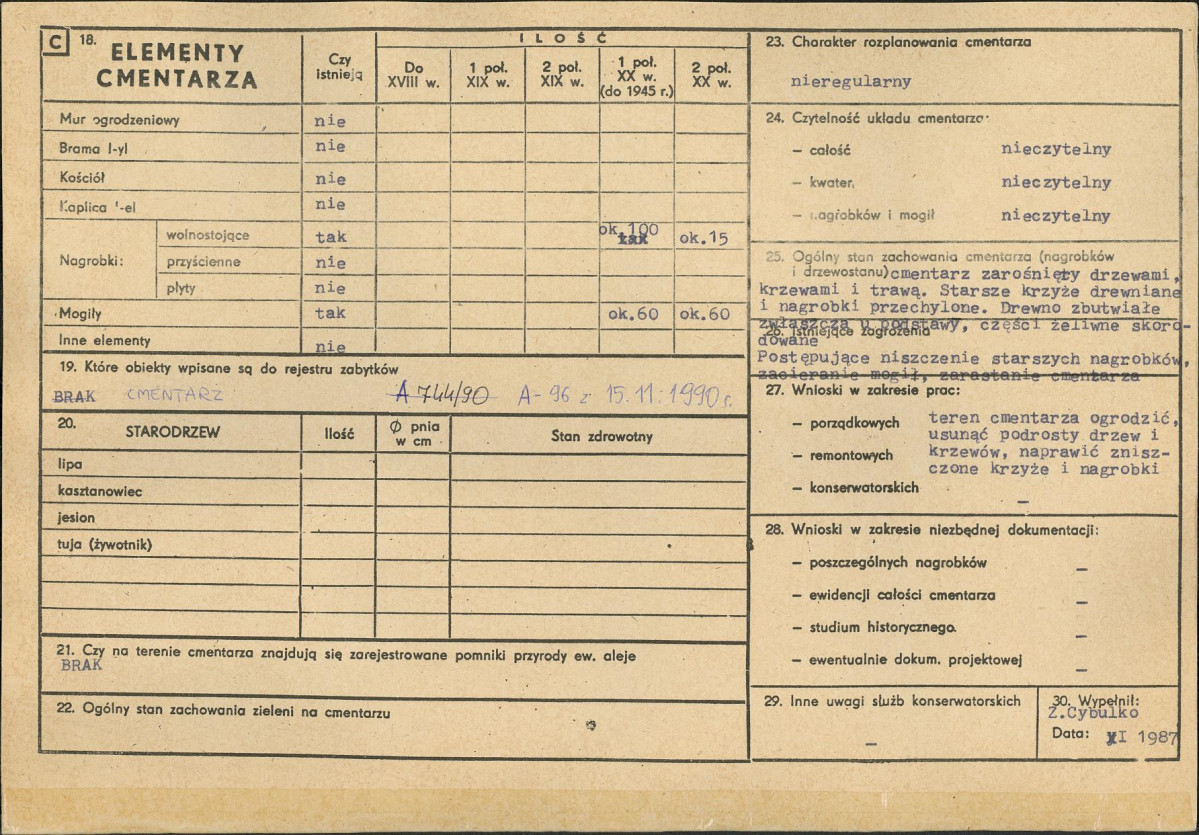 C 18. ELEMENTY CMENTARZA
Czy istnieją
ILOŚĆ
Do XVIII w.
1 poł. XIX w.
2 poł. XIX w.
1 poł. XX w. (do 1945 r.)
2 poł. XX w.
Mur ogrodzeniowy nie
Brama I-yl nie
Kościół nie
Kaplica '-el nie
Nagrobki:
wolnostojące tak ok.100 tak ok.15
przyścienne nie
płyty nie
Mogiły tak ok.60 ok.60
Inne elementy nie
19. Które obiekty wpisane są do rejestru zabytków
BRAK CMENTARZ A 744/90 A-96 z 15.11.1990r.
20. STARODRZEW Ilość Ø pnia w cm Stan zdrowotny
lipa
kasztanowiec
jesion
tuja (żywotnik)
21. Czy na terenie cmentarza znajdują się zarejestrowane pomniki przyrody ew. aleje
BRAK
22. Ogólny stan zachowania zieleni na cmentarzu
23. Charakter rozplanowania cmentarza
nieregularny
24. Czytelność układu cmentarza:
— całość nieczytelny
— kwater, nieczytelny
— nagrobków i mogił nieczytelny
25. Ogólny stan zachowania cmentarza (nagrobków
i drzewostanu) cmentarz zarośnięty drzewami,
krzewami i trawą. Starsze krzyże drewniane
i nagrobki przechylone. Drewno zbutwiałe
zwłaszcza u podstawy, części żeliwne skoro-
26. Istniejące zagrożenia
dowane
Postępujące niszczenie starszych nagrobków,
zacieranie mogił, zarastanie cmentarza
27. Wnioski w zakresie prac:
— porządkowych teren cmentarza ogrodzić,
usunąć podrosty drzew i
— remontowych krzewów, naprawić znisz-
czone krzyże i nagrobki
— konserwatorskich –
28. Wnioski w zakresie niezbędnej dokumentacji:
— poszczególnych nagrobków –
— ewidencji całości cmentarza –
— studium historycznego. –
— ewentualnie dokum. projektowej –
29. Inne uwagi służb konserwatorskich
–
30. Wypełnił:
Z.Cybulko
Data: XI 1987